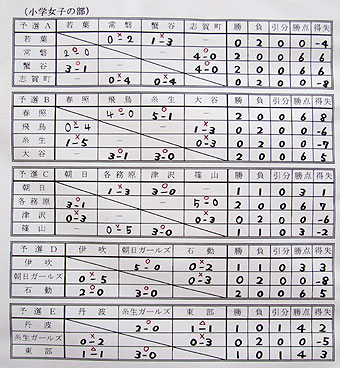 (小学女子の部)
予選A 若葉 常磐 蟹谷 志賀町 勝 負 引分 勝点 得失
若葉 ×0-2 ×1-3 － 0 2 0 0 -4
常磐 ○2-0 － ○4-0 2 0 0 6 6
蟹谷 ○3-1 － ○4-0 2 0 0 6 6
志賀町 － ×0-4 ×0-4 0 2 0 0 -8
予選B 春照 飛鳥 糸生 大谷 勝 負 引分 勝点 得失
春照 ○4-0 ○5-1 － 2 0 0 6 8
飛鳥 ×0-4 － ×1-3 0 2 0 0 -6
糸生 ×1-5 － ×0-3 0 2 0 0 -7
大谷 － ○3-1 ○3-0 2 0 0 6 5
予選C 朝日 各務原 津沢 篠山 勝 負 引分 勝点 得失
朝日 ×1-3 ○3-0 － 1 1 0 3 1
各務原 ○3-1 － ○5-0 2 0 0 6 7
津沢 ×0-3 － ×0-3 0 2 0 0 -6
篠山 － ×0-5 ○3-0 1 1 0 3 -2
予選D 伊吹 朝日ガールズ 石動 勝 負 引分 勝点 得失
伊吹 ○5-0 ×0-2 1 1 0 3 3
朝日ガールズ ×0-5 ×0-3 0 2 0 0 -8
石動 ○2-0 ○3-0 2 0 0 6 5
予選E 丹波 糸生ガールズ 東部 勝 負 引分 勝点 得失
丹波 ○2-0 △1-1 1 0 1 4 2
糸生ガールズ ×0-2 ×0-3 0 2 0 0 -5
東部 △1-1 ○3-0 1 0 1 4 3